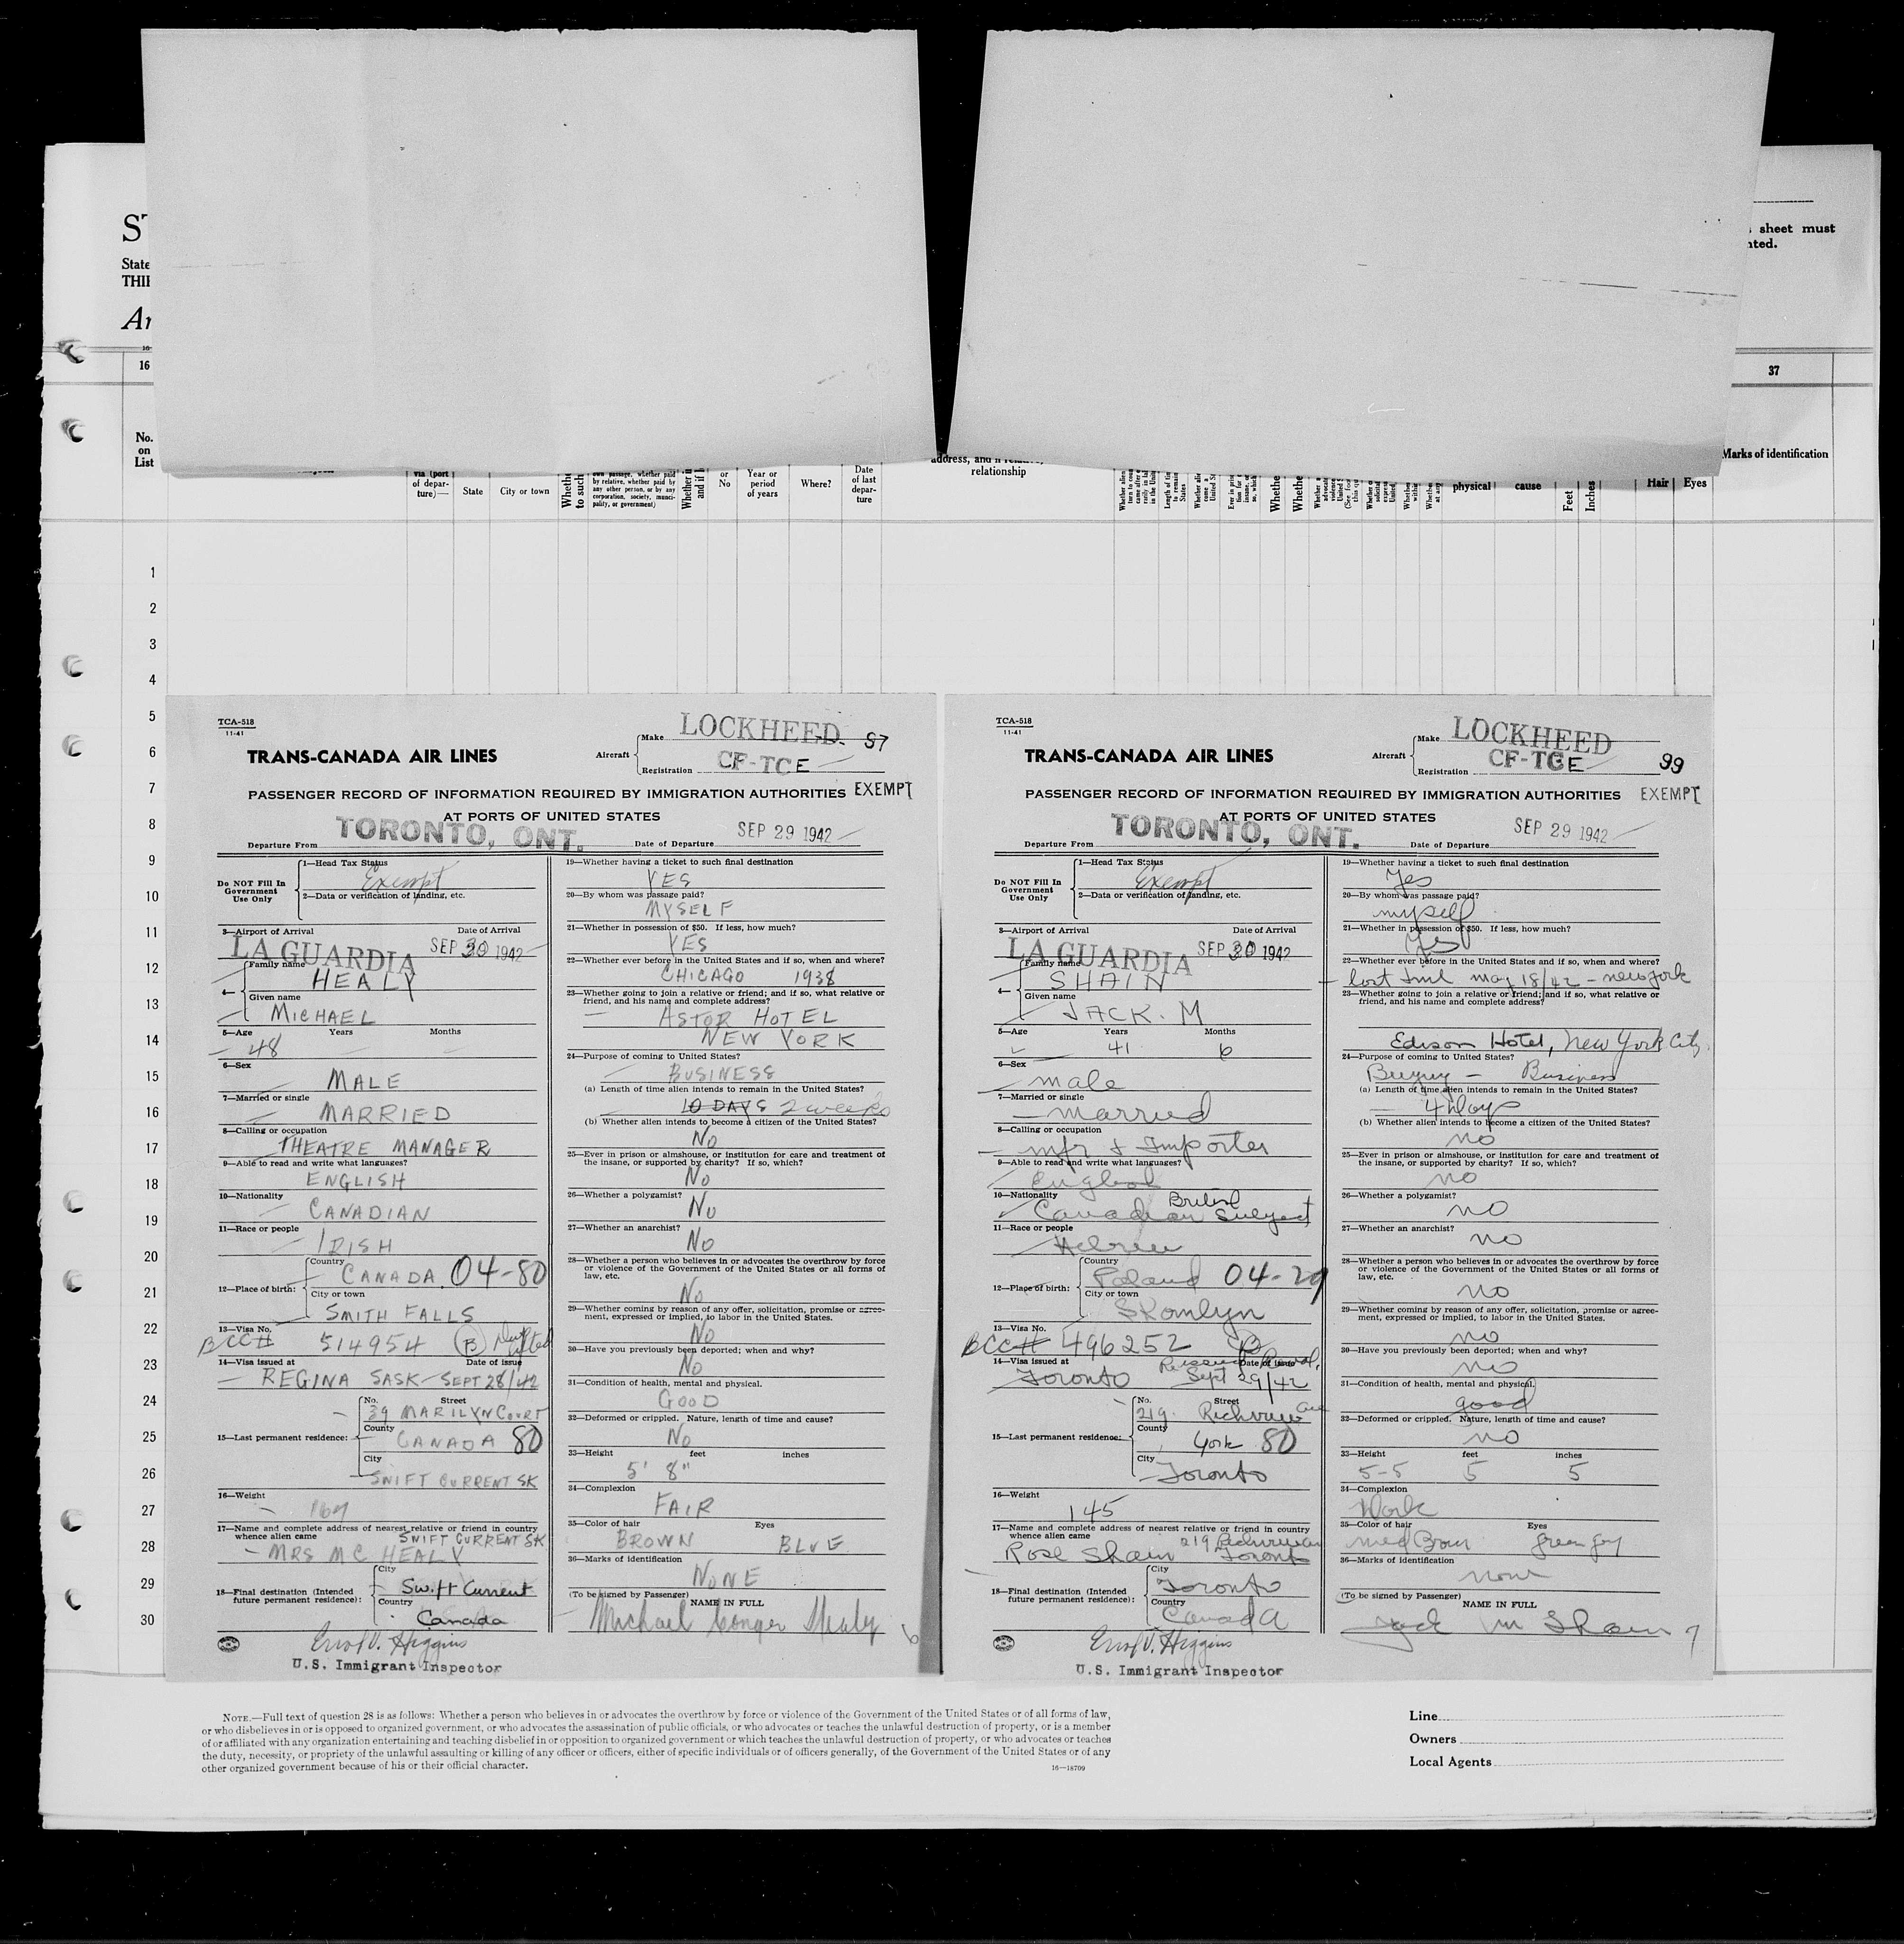 ST
State
THI
Ar
16
No.
on
List
via (port
of depar-
ture)—
State
City or town
own passage, whether paid
by relative, whether paid by
any other person, or by any
corporation, society, munici-
pality, or government)
or
No
Year or
period
of years
Where?
Date
of last
depar-
ture
address, and if relative,
relationship
physical
cause
Feet
Inches
Hair
Eyes
sheet must
nted.
37
Marks of identification
1
2
3
4
5
6
7
8
9
10
11
12
13
14
15
16
17
18
19
20
21
22
23
24
25
26
27
28
29
30
TCA-518
11-41
TRANS-CANADA AIR LINES
Aircraft
Make LOCKHEED
Registration CF-TCE
PASSENGER RECORD OF INFORMATION REQUIRED BY IMMIGRATION AUTHORITIES EXEMPT
AT PORTS OF UNITED STATES
Departure From TORONTO, ONT.
Date of Departure SEP 29 1942
Do NOT Fill In
Government
Use Only
1—Head Tax Status
Exempt
2—Data or verification of landing, etc.
3—Airport of Arrival Date of Arrival
LA GUARDIA SEP 30 1942
4— Family name
HEALY
Given name
MICHAEL
5—Age Years Months
48
6—Sex
MALE
7—Married or single
MARRIED
8—Calling or occupation
THEATRE MANAGER
9—Able to read and write what languages?
ENGLISH
10—Nationality
CANADIAN
11—Race or people
IRISH
12—Place of birth:
Country
CANADA 04-80
City or town
SMITH FALLS
13—Visa No.
BCC# 514954 B
14—Visa issued at Date of issue
REGINA SASK - SEPT 28/42
15—Last permanent residence:
No. Street
39 MARILYN COURT
County
CANADA 80
City
SWIFT CURRENT SK
16—Weight
17—Name and complete address of nearest relative or friend in country
whence alien came SWIFT CURRENT SK
MRS M C HEALY
18—Final destination (Intended
future permanent residence):
City
Swift Current
Country
Canada
Errol V. Higgins
U.S. Immigrant Inspector
19—Whether having a ticket to such final destination
YES
20—By whom was passage paid?
MYSELF
21—Whether in possession of $50. If less, how much?
YES
22—Whether ever before in the United States and if so, when and where?
CHICAGO 1938
23—Whether going to join a relative or friend; and if so, what relative or
friend, and his name and complete address?
ASTOR HOTEL
NEW YORK
24—Purpose of coming to United States?
BUSINESS
(a) Length of time alien intends to remain in the United States?
10 DAYS 2 weeks
(b) Whether alien intends to become a citizen of the United States?
No
25—Ever in prison or almshouse, or institution for care and treatment of
the insane, or supported by charity? If so, which?
No
26—Whether a polygamist?
No
27—Whether an anarchist?
No
28—Whether a person who believes in or advocates the overthrow by force
or violence of the Government of the United States or all forms of
law, etc.
No
29—Whether coming by reason of any offer, solicitation, promise or agree-
ment, expressed or implied, to labor in the United States.
No
30—Have you previously been deported; when and why?
No
31—Condition of health, mental and physical.
GOOD
32—Deformed or crippled. Nature, length of time and cause?
No
33—Height feet inches
5' 8"
34—Complexion
FAIR
35—Color of hair Eyes
BROWN BLUE
36—Marks of identification
NONE
(To be signed by Passenger) NAME IN FULL
Michael Conger Healy 6
TCA-518
11-41
TRANS-CANADA AIR LINES
Aircraft
Make LOCKHEED
Registration CF-TCE
99
PASSENGER RECORD OF INFORMATION REQUIRED BY IMMIGRATION AUTHORITIES EXEMPT
AT PORTS OF UNITED STATES
Departure From TORONTO, ONT.
Date of Departure SEP 29 1942
Do NOT Fill In
Government
Use Only
1—Head Tax Status
Exempt
2—Data or verification of landing, etc.
3—Airport of Arrival Date of Arrival
LA GUARDIA SEP 30 1942
4— Family name
SHAIN
Given name
JACK. M
5—Age Years Months
41 6
6—Sex
male
7—Married or single
married
8—Calling or occupation
mfr & Importer
9—Able to read and write what languages?
English
10—Nationality British
Canadian Subject
11—Race or people
Hebrew
12—Place of birth:
Country
Poland 04-29
City or town
13—Visa No.
BCC# 496252 B
14—Visa issued at Date of issue
Toronto Sept 29/42
15—Last permanent residence:
No. Street
219 Richview Ave
County
York 80
City
Toronto
16—Weight
145
17—Name and complete address of nearest relative or friend in country
whence alien came 219 Richview
Rose Shain Toronto
18—Final destination (Intended
future permanent residence):
City
Toronto
Country
Canada
Errol V. Higgins
U.S. Immigrant Inspector
19—Whether having a ticket to such final destination
Yes
20—By whom was passage paid?
myself
21—Whether in possession of $50. If less, how much?
Yes
22—Whether ever before in the United States and if so, when and where?
last time may 18/42 - new york
23—Whether going to join a relative or friend; and if so, what relative or
friend, and his name and complete address?
Edison Hotel, New York City
24—Purpose of coming to United States?
Buying - Business
(a) Length of time alien intends to remain in the United States?
4 Days
(b) Whether alien intends to become a citizen of the United States?
no
25—Ever in prison or almshouse, or institution for care and treatment of
the insane, or supported by charity? If so, which?
no
26—Whether a polygamist?
no
27—Whether an anarchist?
no
28—Whether a person who believes in or advocates the overthrow by force
or violence of the Government of the United States or all forms of
law, etc.
no
29—Whether coming by reason of any offer, solicitation, promise or agree-
ment, expressed or implied, to labor in the United States.
no
30—Have you previously been deported; when and why?
no
31—Condition of health, mental and physical.
good
32—Deformed or crippled. Nature, length of time and cause?
no
33—Height feet inches
5-5 5 5
34—Complexion
35—Color of hair Eyes
med Brown green grey
36—Marks of identification
none
(To be signed by Passenger) NAME IN FULL
Jack M Shain 7
NOTE.—Full text of question 28 is as follows: Whether a person who believes in or advocates the overthrow by force or violence of the Government of the United States or of all forms of law,
or who disbelieves in or is opposed to organized government, or who advocates the assassination of public officials, or who advocates or teaches the unlawful destruction of property, or is a member
of or affiliated with any organization entertaining and teaching disbelief in or opposition to organized government or which teaches the unlawful destruction of property, or who advocates or teaches
the duty, necessity, or propriety of the unlawful assaulting or killing of any officer or officers, either of specific individuals or of officers generally, of the Government of the United States or of any
other organized government because of his or their official character.
16—18709
Line
Owners
Local Agents